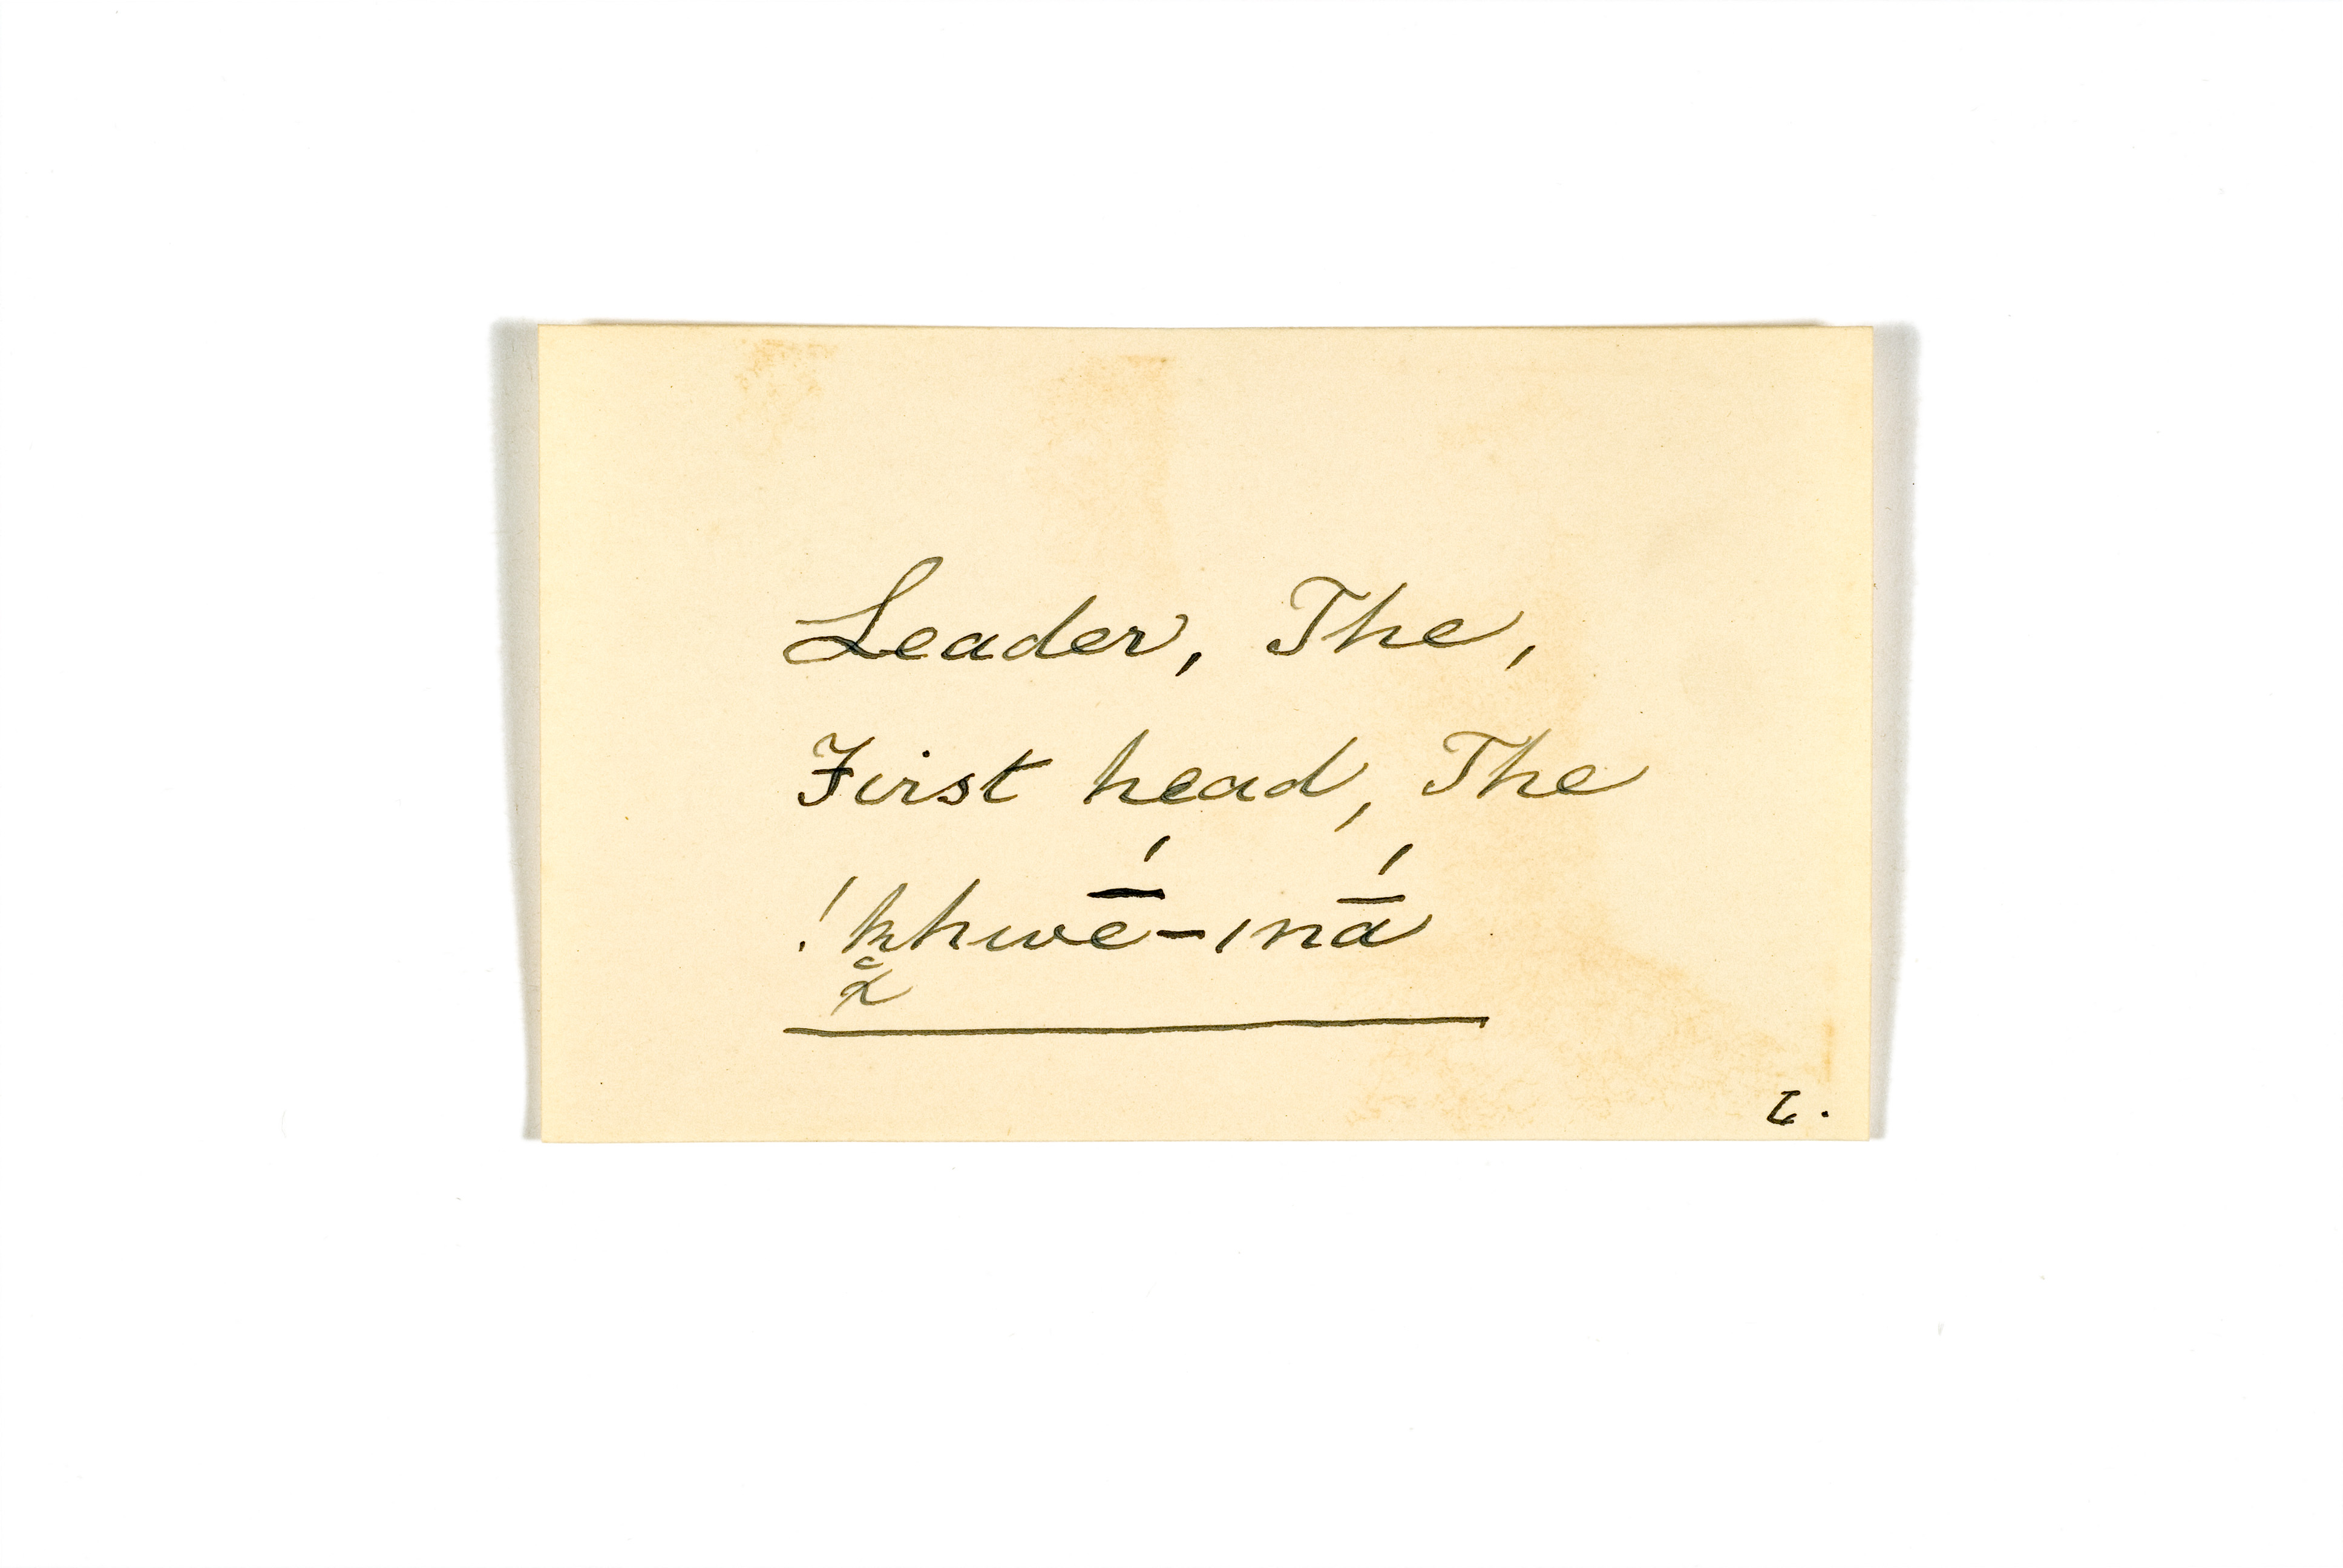 Leader, The,
First head, The
!k̥khwḗ-ınā́
L.